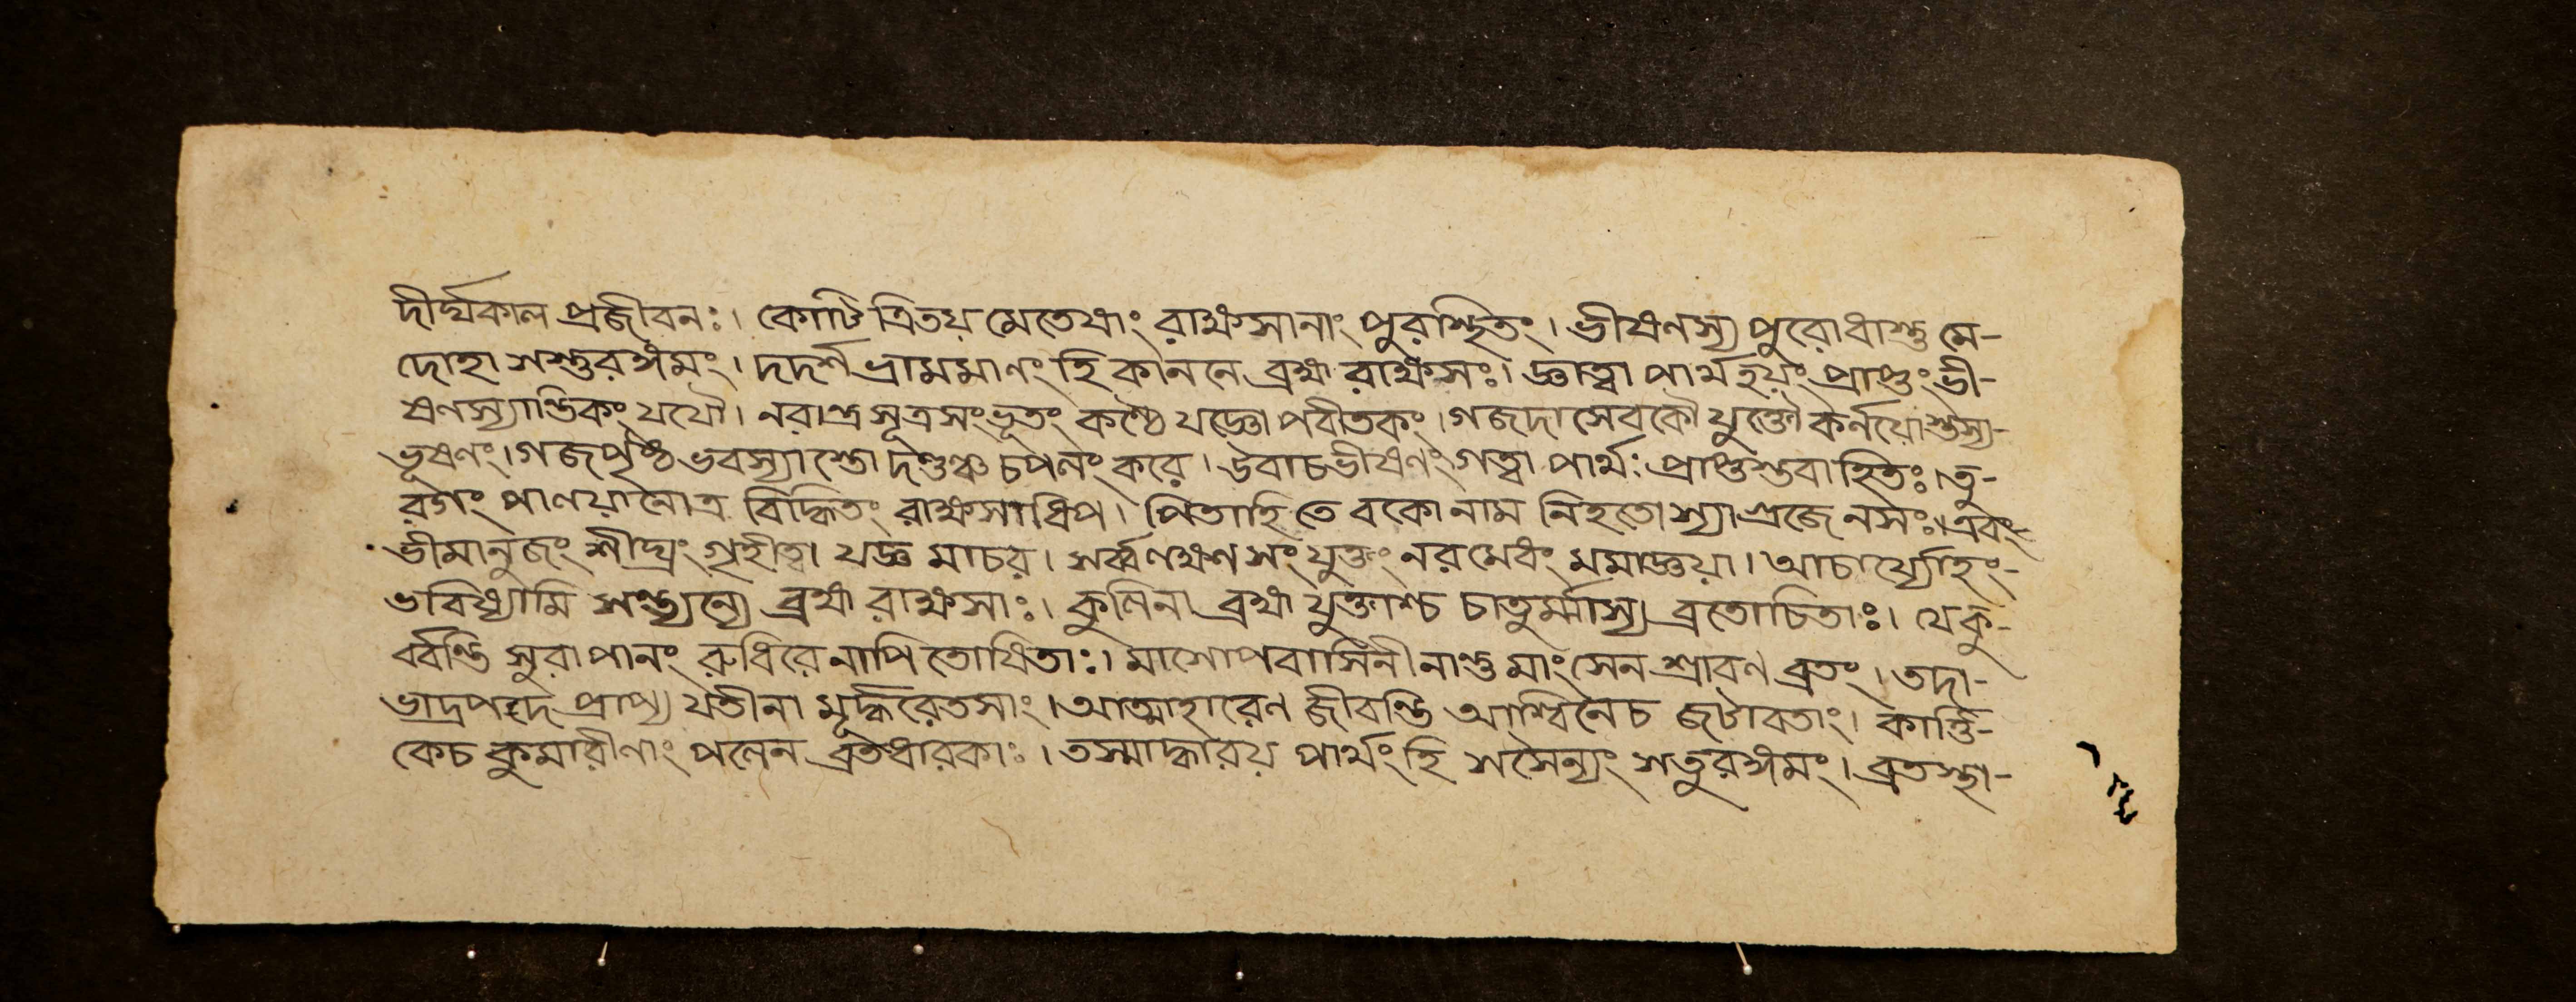 দীর্ঘকাল প্রজীবনঃ। কোটি ত্রিতয় মেতেষাং রাক্ষসানাং পুরশ্ছিতং। ভীষণস্য পুরোধাস্তু মে-
দোহা শস্তুরঙ্গমং। দদর্শ ভ্রামমাণং হি কাননে ব্রহ্ম রাক্ষসঃ। জ্ঞাত্বা পার্থ হয়ং প্রাপ্তুং ভী-
ষণস্যান্তিকং যযৌ। নরান্ত্র সূত্রসংভূতং কণ্ঠে যজ্ঞোপবীতকং। গজদা সেবকৌ যুক্তৌ কর্নয়োস্তস্য-
ভূষণং। গজপৃষ্ঠ ভবস্যাস্তো দণ্ডঞ্চ চপলং করে। উবাচ ভীষণং গত্বা পার্থঃ প্রাপ্তস্তবাহিতঃ। তু-
রগং পাণয়ানোত্র বিদ্ধিতং রাক্ষসাধিপ। পিতাহি তে বকো নাম নিহতোশ্যাগ্রজেনসঃ। এবং-
ভীমানুজং শীঘ্রং গৃহীত্বা যজ্ঞ মাচর। সর্ব্বলক্ষণ সংযুক্তং নরমেধং মমাজ্ঞয়া। আচার্য্যোহং-
ভবিষ্যামি সন্ত্যন্যে ব্রহ্ম রাক্ষসাঃ। কুলিনা ব্রহ্ম যুক্তাশ্চ চাতুর্ম্মাস্য ব্রতোচিতাঃ। যেকু-
র্ব্বন্তি সুরাপানং রুধিরেনাপি তোষিতাঃ। মাসোপবাসিনীনান্তু মাংসেন শ্রাবণ ব্রতং। তদা-
ভাদ্রপদে প্রাপ্য যতীনা মূর্দ্ধরেতসাং। আত্মাহারেণ জীবন্তি আশ্বিনেচ জটাবতাং। কার্ত্তি-
কেচ কুমারীণাং পলেন ব্রতধারকাঃ। তস্মাদ্ধারয় পার্থং হি শসৈন্যং শতুরঙ্গমং। ব্রতস্থা-